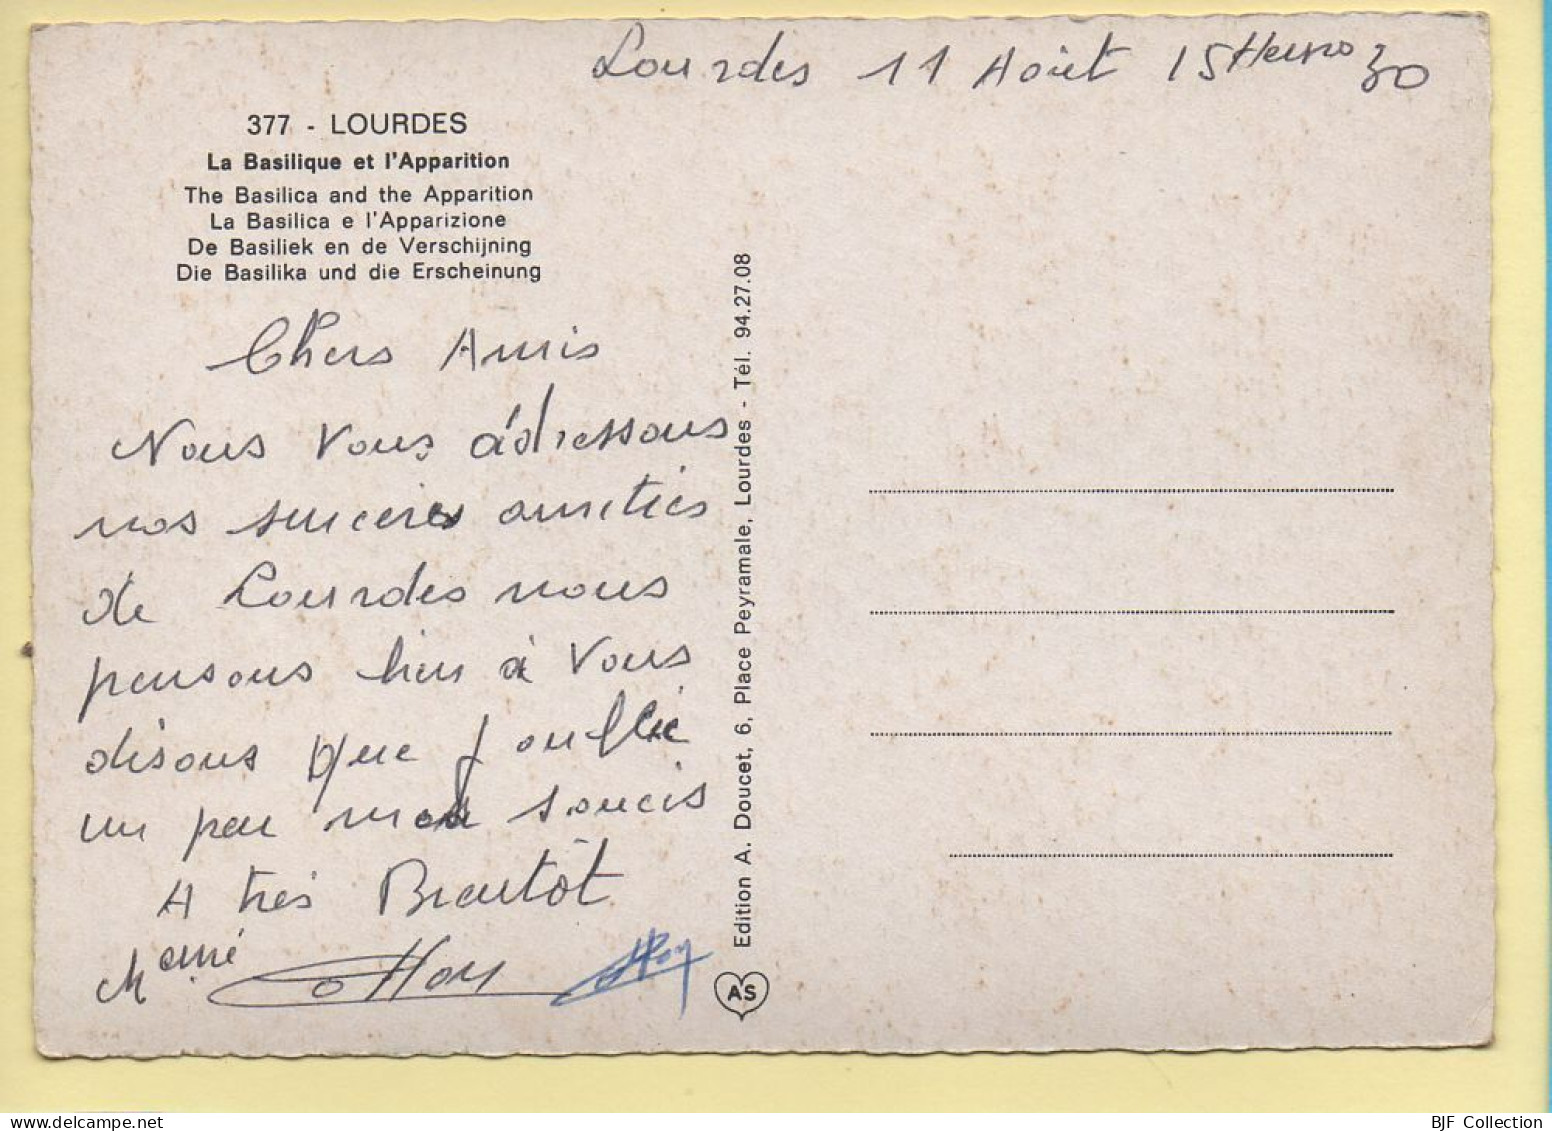 Lourdes 11 Août 15 Heures 30
377 - LOURDES
La Basilique et l'Apparition
The Basilica and the Apparition
La Basilica e l'Apparizione
De Basiliek en de Verschijning
Die Basilika und die Erscheinung
Chers Amis
Nous Vous adressons
nos sinceres amitiés
de Lourdes nous
pensons bien à Vous
disons que j oublie
un peu mes soucis
A très Bientôt
Edition A. Doucet, 6, Place Peyramale, Lourdes - Tél. 94.27.08
AS
BJF Collection